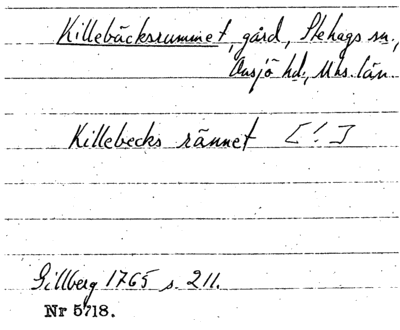 Killebäcksrummet, gård, Stehags sn.,
Onsjö hd., Mhs. län.
Killebecks rännet [!]
Gillberg 1765 s. 211.
Nr 5718.